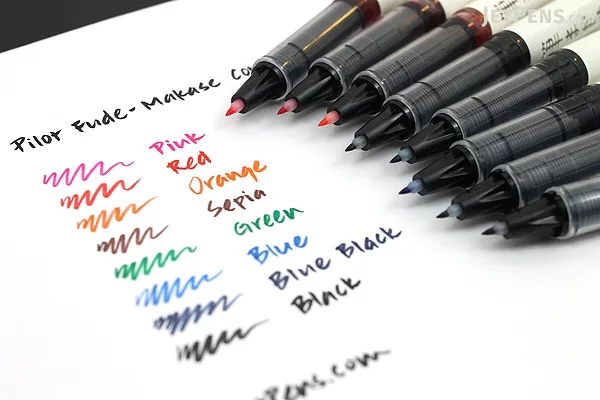 JETPENS.com
Pilot Fude-Makase Co
Pink
Red
Orange
Sepia
Green
Blue
Blue Black
Black
Pens.com